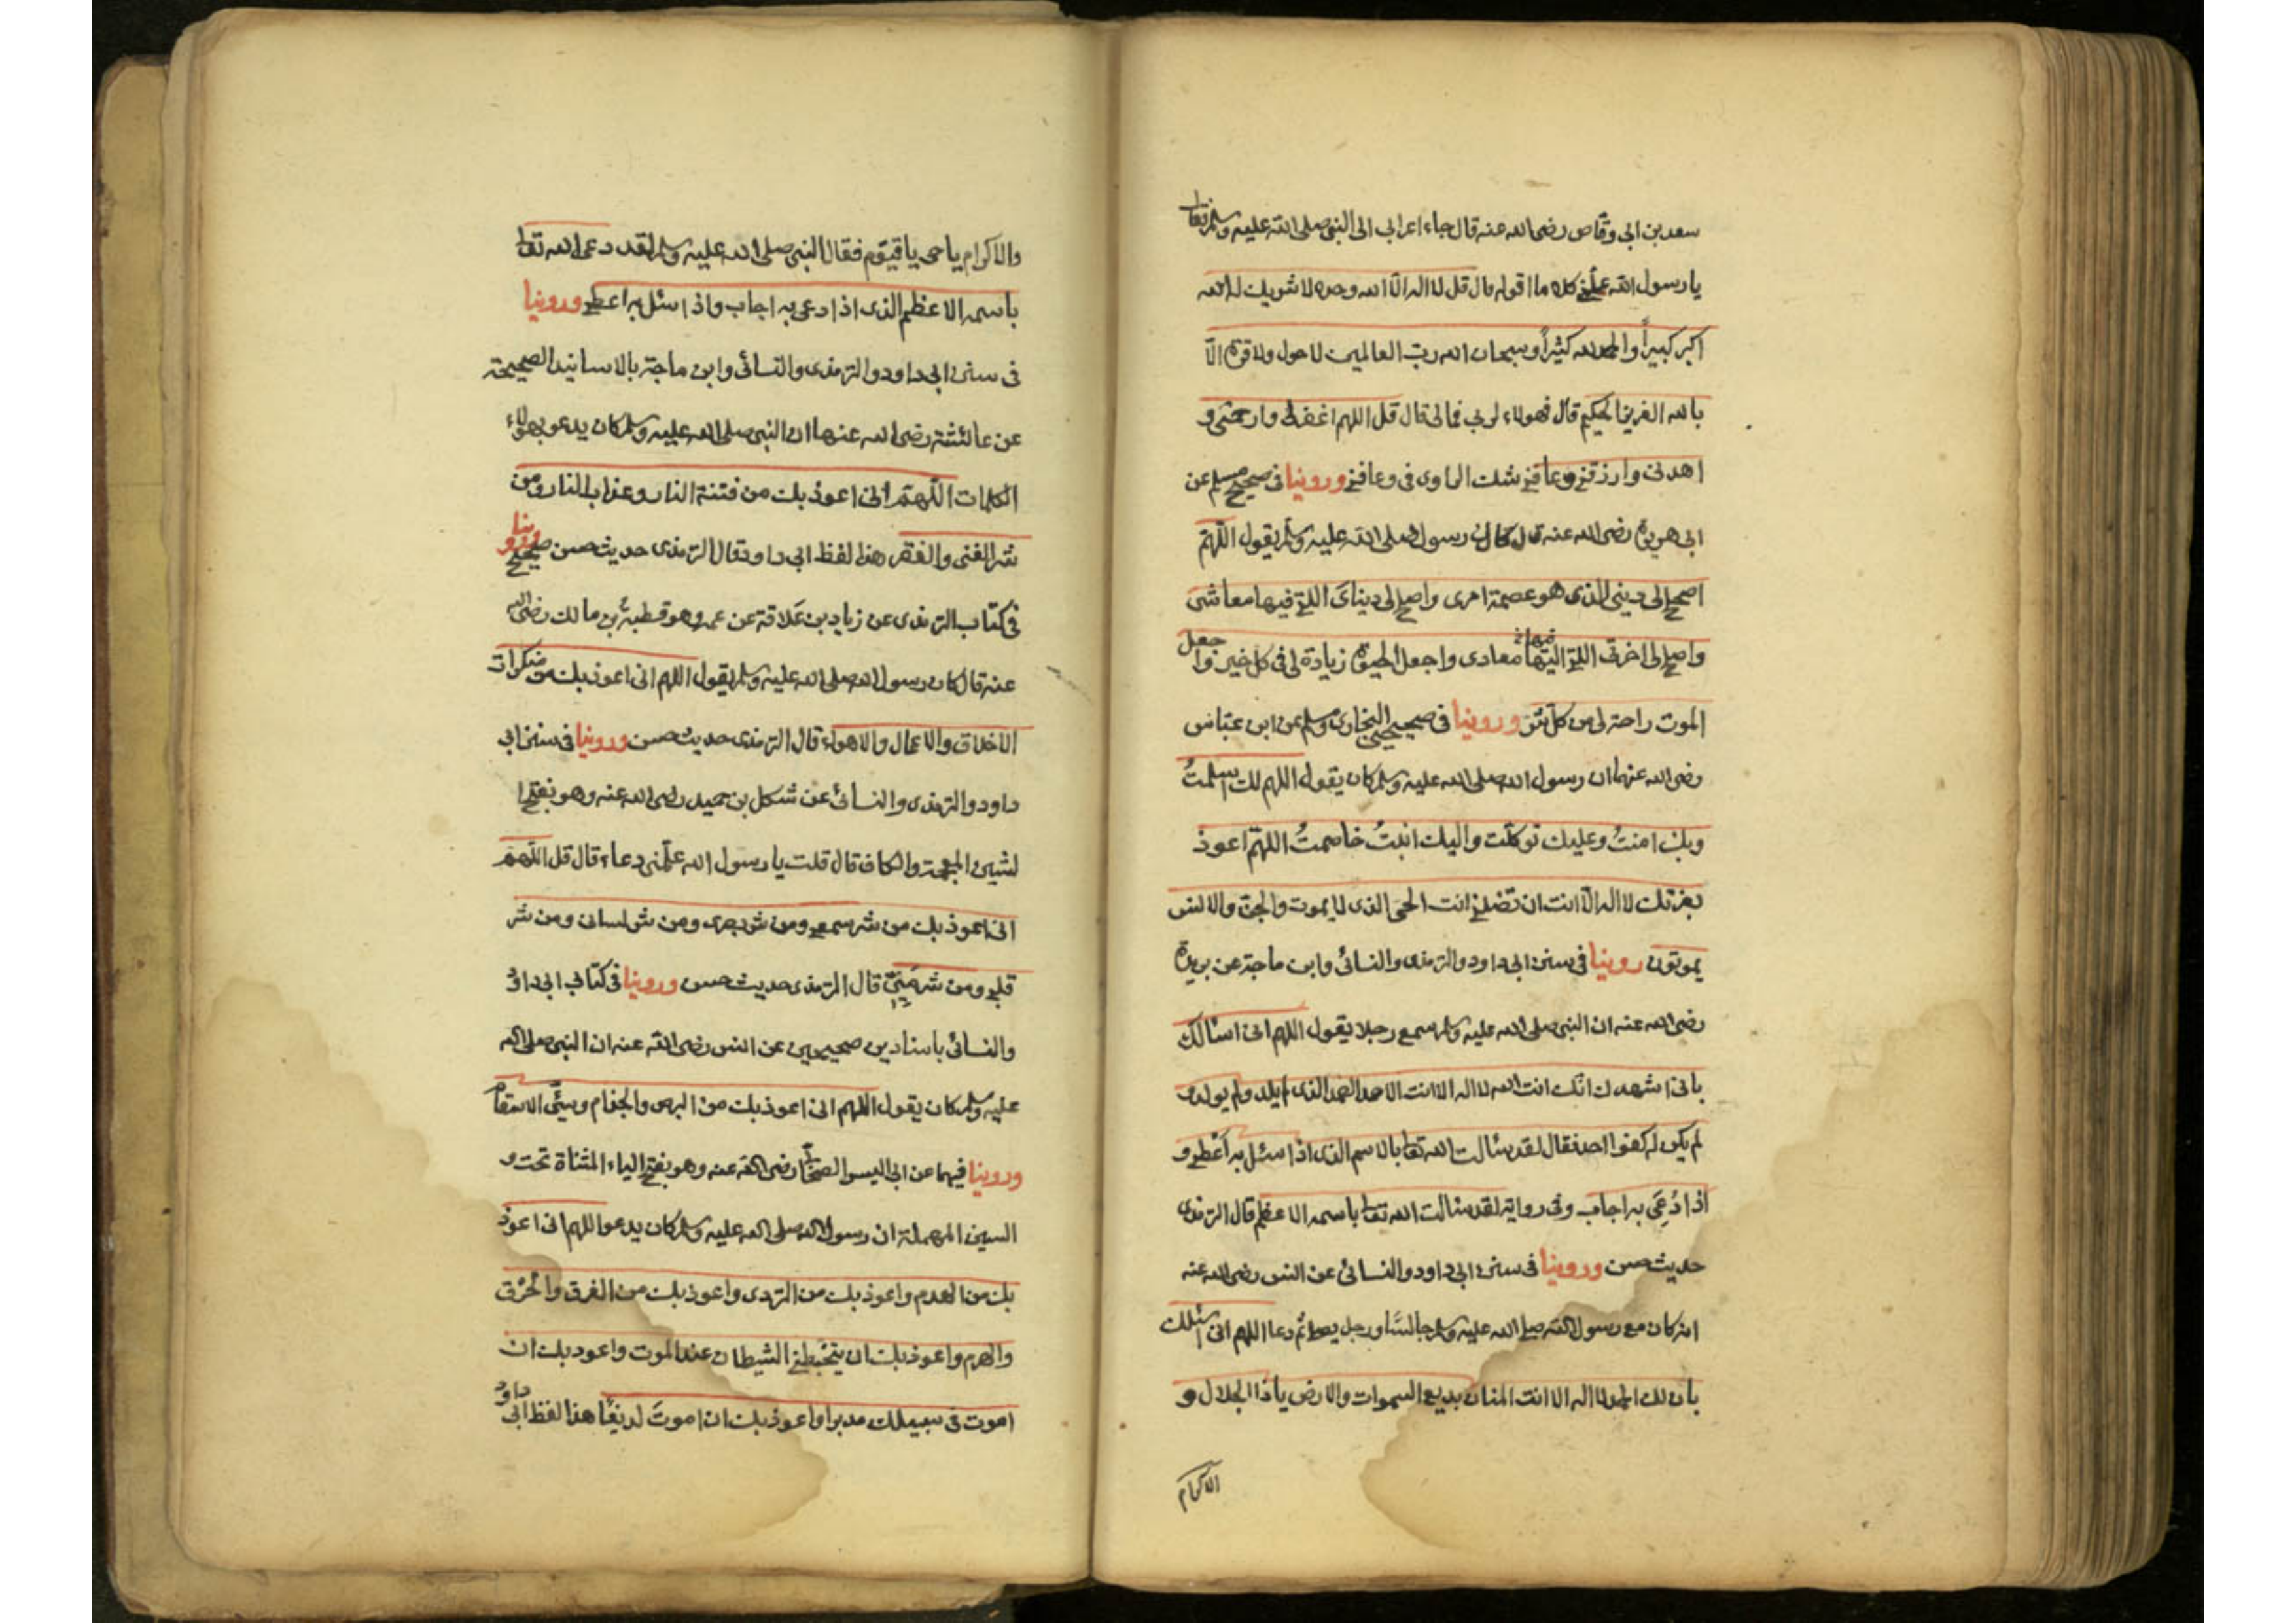 سعد بن ابى وقاص رضى الله عنه قال جاء اعرابى الى النبى صلى الله عليه وسلم فقال
يا رسول الله علمنى كلاما اقوله قال قل لا اله الا الله وحده لا شريك له الله
اكبر كبيراً والحمد لله كثيراً وسبحان الله رب العالمين لا حول ولا قوة الّا
بالله العزيز الحكيم قال فهولاء لربى فما لى قال قل اللهم اغفر لى وارحمنى و
اهدنى وارزقنى وعافنى شك الراوى فى وعافنى وروينا فى صحيح مسلم عن
ابى هريرة رضى الله عنه قال كان رسول الله صلى الله عليه وسلم يقول اللّهمّ
اصلح لى دينى الذى هو عصمة امرى واصلح لى دنياى اللتى فيها معاشى
واصلح لى اخرتى اللتى فيها معادى واجعل الحيوة زيادة لى فى كل خير واجعل
الموت راحة لى من كل شر وروينا فى صحيحى البخارى ومسلم عن ابن عبّاس
رضى الله عنهما ان رسول الله صلى الله عليه وسلم كان يقول اللهم لك اسلمتُ
وبك امنتُ وعليك توكلت واليك انبتُ خاصمتُ اللهمّ اعوذ
بعزتك لا اله الّا انت ان تضلنى انت الحى الذى لا يموت والجن والانس
يموتون روينا فى سنن ابى داود والترمذى والنسائى وابن ماجة عن بريدة
رضى الله عنه ان النبى صلى الله عليه وسلم سمع رجلا يقول اللهم انى اسالك
بانى اشهدك انّك انت الله لا اله الا انت الاحد الصمد الذى لم يلد ولم يولد و
لم يكن له كفوا احد فقال لقد سئالت الله تعا بالاسم الذى اذا سئل به اعطى و
اذا دُعِىَ به اجاب وفى رواية لقد سئالت الله تعا باسمه الاعظم قال الترمذى
حديث حسن وروينا فى سنن ابى داود والنسائى عن انس رضى الله عنه
انه كان مع رسول الله صلى الله عليه وسلم جالسًا ورجل يصلى ثم دعا اللهم انى اسئلك
بان لك الحمد لا اله الا انت المنان بديع السموات والارض يا ذا الجلال و
الاكرام
والاكرام يا حى يا قيّوم فقال النبى صلى الله عليه وسلم لقد دعى الله تعا
باسمه الاعظم الذى اذا دعى به اجاب واذا سئل به اعطى وروينا
فى سنن ابى داود والترمذى والنسائى وابن ماجة بالاسانيد الصحيحة
عن عائشة رضى الله عنها ان النبى صلى الله عليه وسلم كان يدعو بهولاء
الكلمات اللّهمّ انى اعوذ بك من فتنة النار وعذاب النار ومن
شر الغنى والفقر هذا لفظ ابى داود قال الترمذى حديث حسن صحيح وروينا
فى كتاب الترمذى عن زياد بن عَلاقة عن عمه وهو قطبة بن مالك رضى الله
عنه قال كان رسول الله صلى الله عليه وسلم يقول اللهم انى اعوذ بك من منكرات
الاخلاق والاعمال والاهواء قال الترمذى حديث حسن وروينا فى سنن ابى
داود والترمذى والنسائى عن شكل بن حميد رضى الله عنه وهو بفتح ا
لشين المعجمة والكاف قال قلت يا رسول الله علّمنى دعاء قال قل اللّهمّ
انى اعوذ بك من شر سمعى ومن شر بصرى ومن شر لسانى ومن شر
قلبى ومن شر منيّى قال الترمذى حديث حسن وروينا فى كتابى ابى داود
والنسائى باسنادين صحيحين عن انس رضى الله عنه ان النبى صلى الله
عليه وسلم كان يقول اللهم انى اعوذ بك من البرص والجذام وسيّئ الاسقام
وروينا فيهما عن ابى اليسر الصحابى رضى الله عنه وهو بفتح الياء المثناة تحت و
السين المهملة ان رسول الله صلى الله عليه وسلم كان يدعو اللهم انى اعوذ
بك من الهدم واعوذ بك من التردى واعوذ بك من الغرق والحُرَق
والهرم واعوذ بك ان يتخبطنى الشيطان عند الموت واعوذ بك ان
اموت فى سبيلك مدبرا واعوذ بك ان اموتَ لديغًا هذا لفظ ابى داود